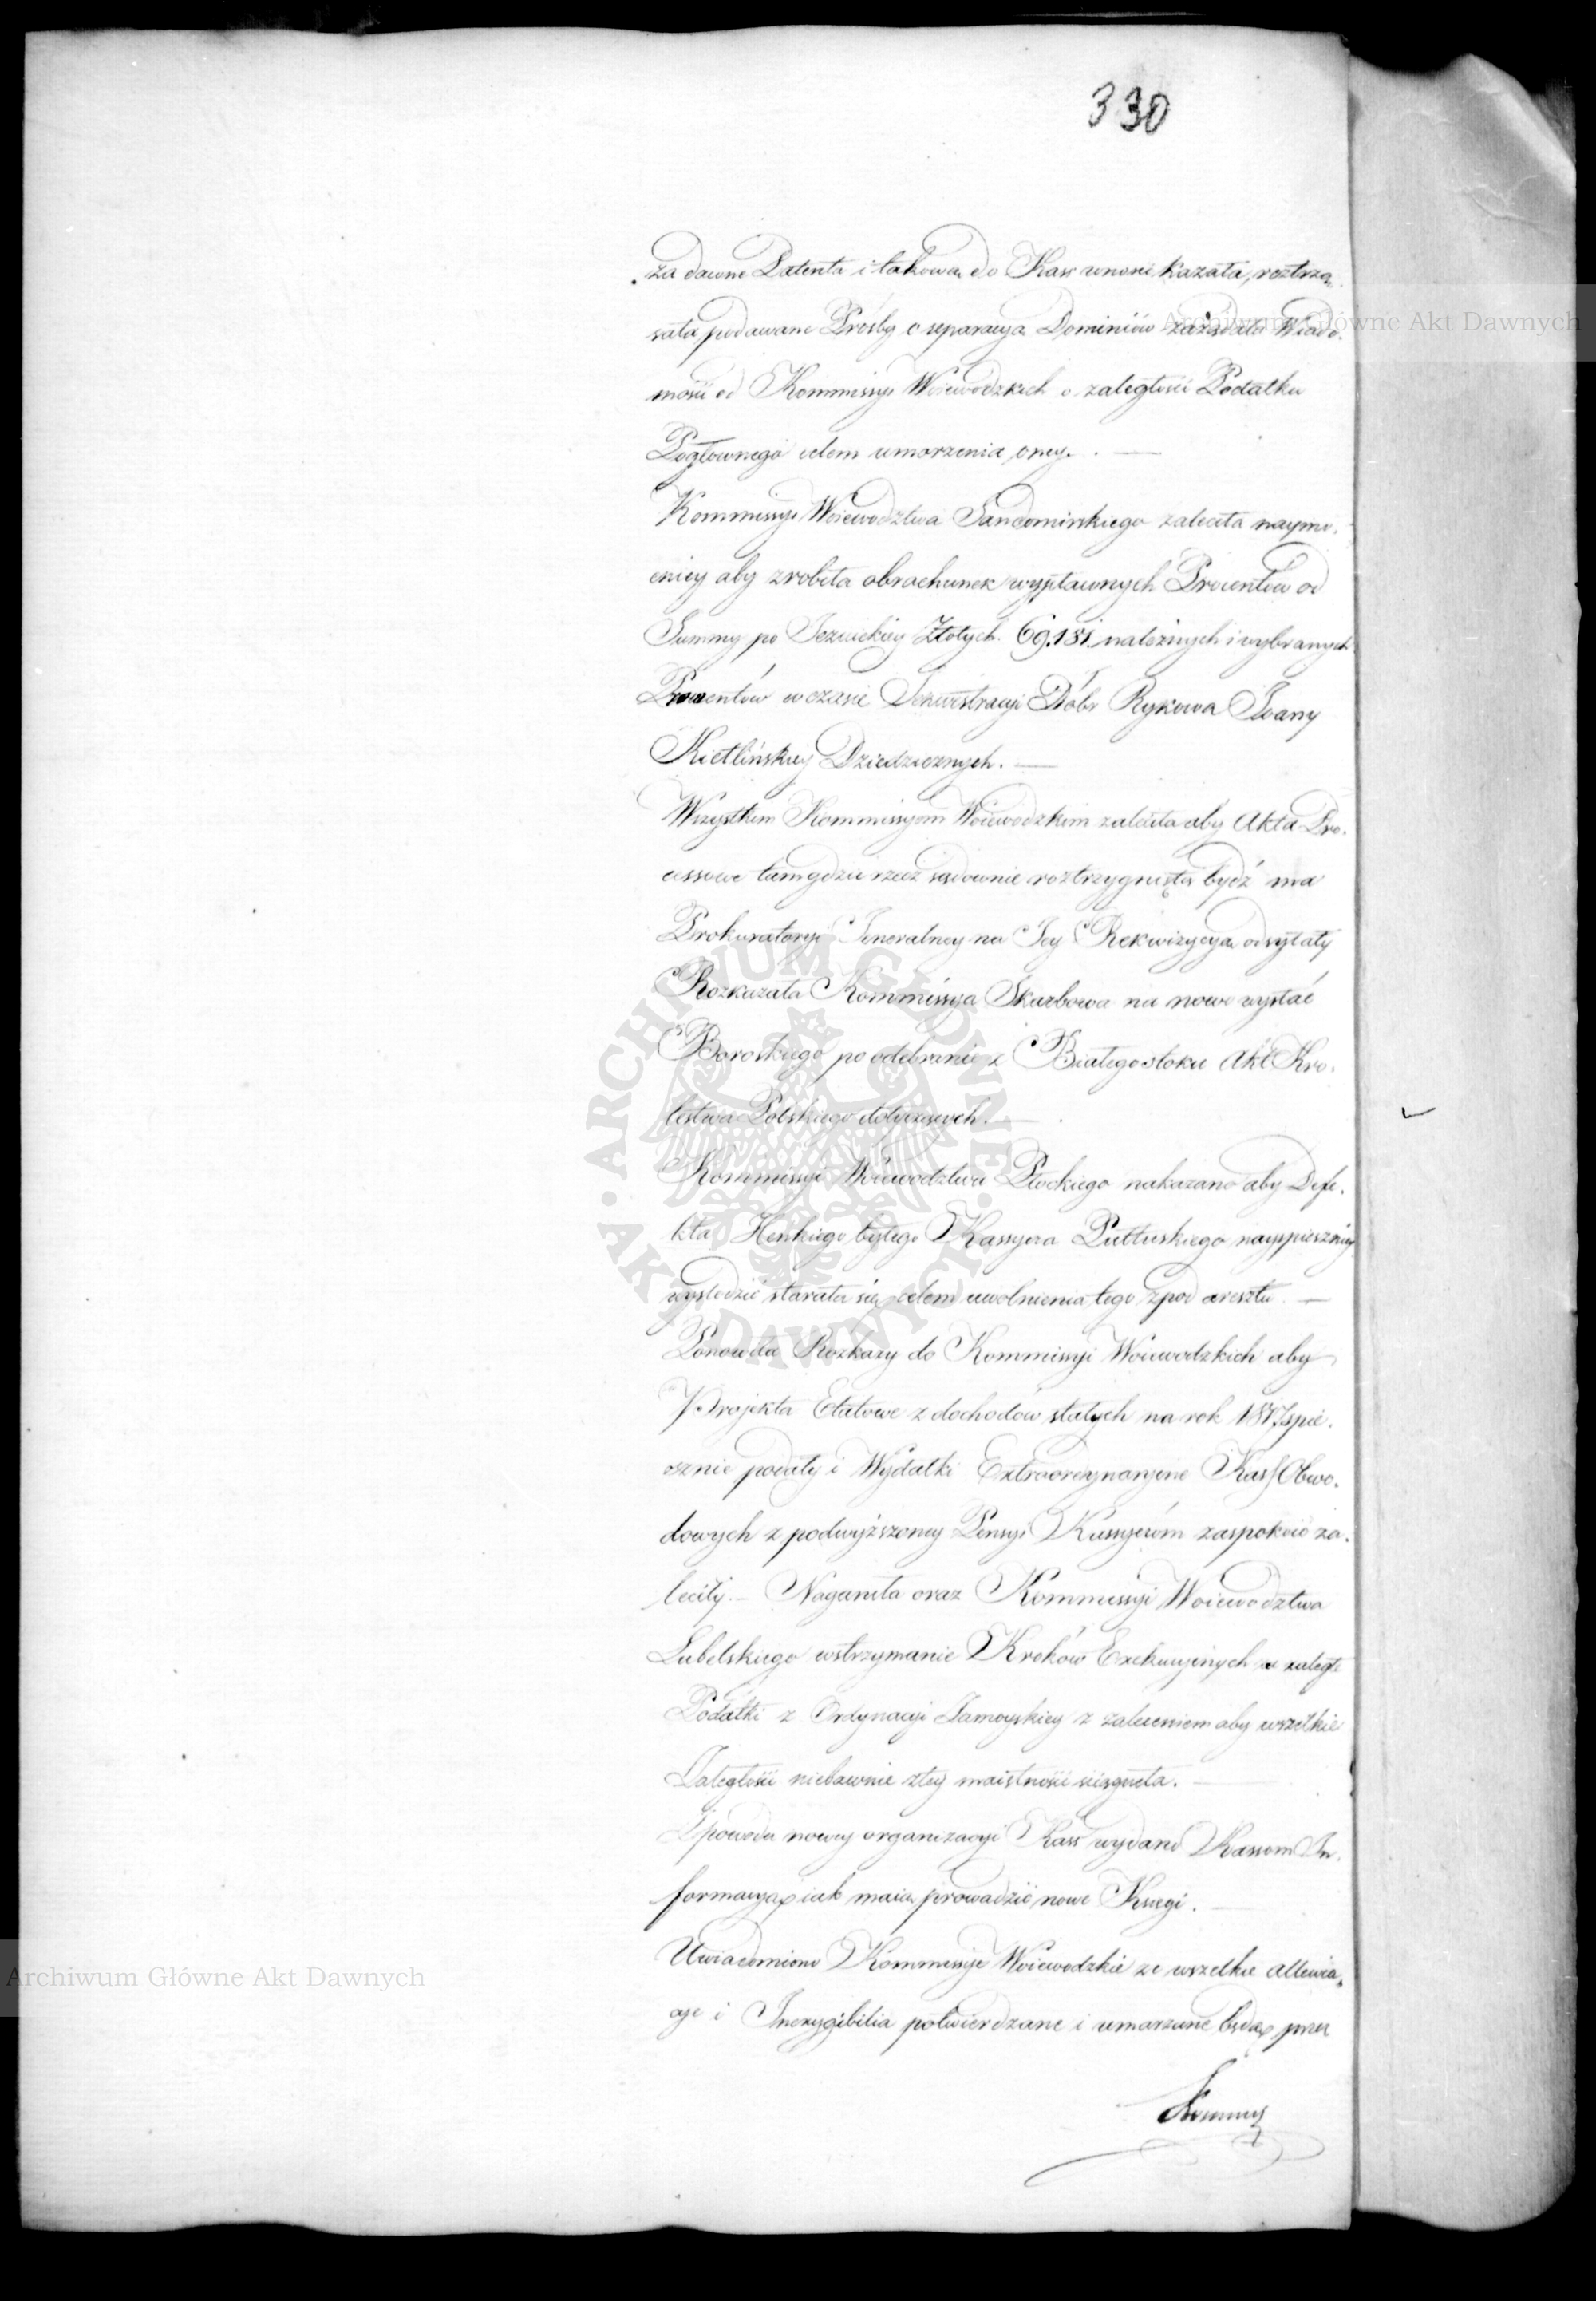 330
za dawne Patenta i takowa do Kass wnosić kazała, roztrzą-
sała podawane Prośby o separacyą Dominiów zażądała Wiado-
mości od Kommissyi Woiewodzkich o zaległości Podatku
Pogłownego celem umorzenia oney. —
Kommissyi Woiewodztwa Sandomirskiego zaleciła naymo-
cniey aby zrobiła obrachunek wypłaconych Procentów od
Summy po Jezuickiey Złotych 69.181. należnych i wybranych
Procentów w czasie Sekwestracyi Dóbr Rykowa Joany
Kietlińskiey Dziedzicznych. —
Wszystkim Kommissyom Woiewodzkim zaleciła aby Akta Pro-
cessowe tam gdzie rzecz sądownie roztrzygnięta bydź ma
Prokuratoryi Jeneralney na Jey Rekwizycyą odsyłały
Rozkazała Kommissya Skarbowa na nowo wysłać
Boroskiego po odebranie z Białegostoku Akt Kro-
lestwa Polskiego dotyczących. —
Kommissyi Woiewodztwa Płockiego nakazano aby Defe-
kta Henkiego byłego Kassyera Pułtuskiego nayspieszniey
wyśledzić starała się celem uwolnienia tego z pod aresztu. —
Ponowiła Rozkazy do Kommissyi Woiewodzkich aby
Projekta Etatowe z dochodów stałych na rok 1817 spie-
sznie podały i Wydatki Extraordynaryjne Kass Obwo-
dowych z podwyższoney Pensyi Kassyerów zaspokoić za-
leciły. — Naganiła oraz Kommissyi Woiewodztwa
Lubelskiego wstrzymanie Kroków Exekucyjnych o zaległe
Podatki z Ordynacyi Zamoyskiey z zaleceniem aby wszelkie
Zaległości niebawnie z tey maiętności ściągnęła. —
Z powodu nowey organizacyi Kass wydano Kassom In-
formacyą jak maią prowadzić nowe Księgi. —
Uwiadomiono Kommissye Woiewodzkie ze wszelkie allewia-
cye i Inexygibilia potwierdzane i umarzane będą przez
Kommis
Archiwum Główne Akt Dawnych
Archiwum Główne Akt Dawnych
ARCHIWUM GŁÓWNE AKT DAWNYCH